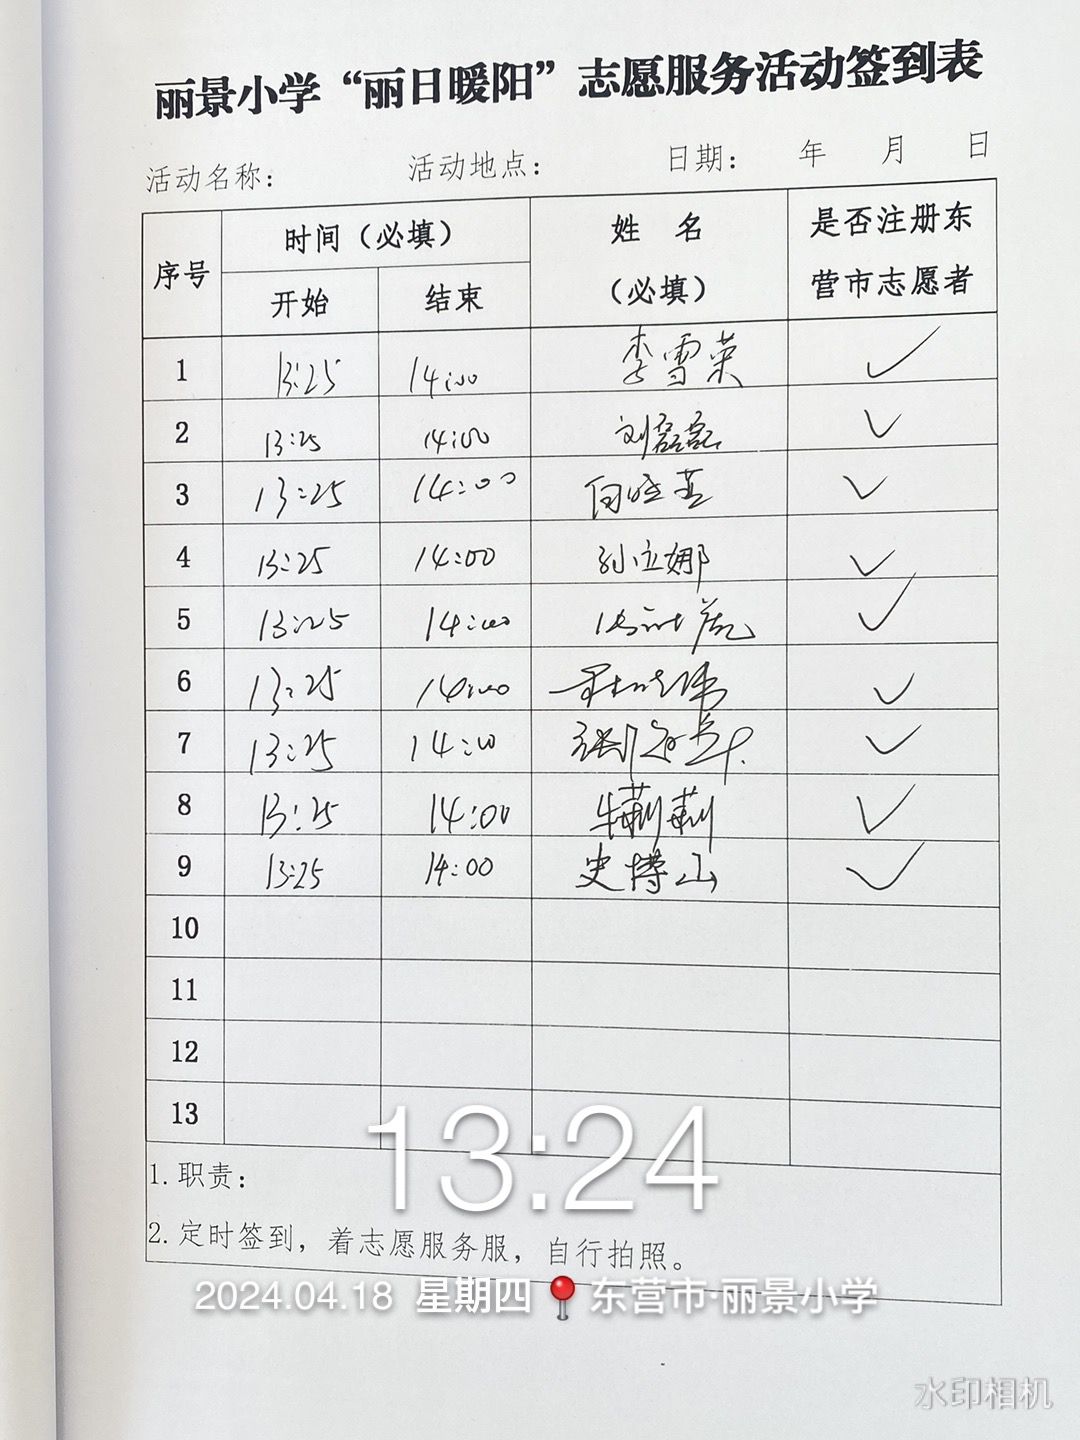 丽景小学“丽日暖阳”志愿服务活动签到表
活动名称： 活动地点： 日期： 年 月 日
序号 时间（必填） 姓 名 是否注册东
开始 结束 （必填） 营市志愿者
1 13:25 14:00 李雪荣 ✓
2 13:25 14:00 刘磊磊 ✓
3 13:25 14:00 ✓
4 13:25 14:00 孙立娜 ✓
5 13:25 14:00 ✓
6 13:25 14:00 ✓
7 13:25 14:00 ✓
8 13:25 14:00 牛莉莉 ✓
9 13:25 14:00 史博山 ✓
10
11
12
13
13:24
1.职责：
2.定时签到，着志愿服务服，自行拍照。
2024.04.18 星期四 东营市·丽景小学
水印相机